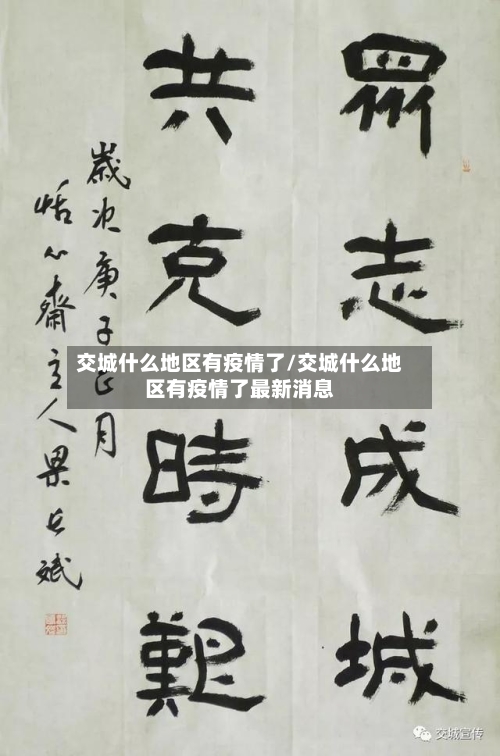 眾志成城
共克時艱
歲次庚子正月
恬心齋主人梁長斌
交城什么地区有疫情了/交城什么地
区有疫情了最新消息
交城宣传